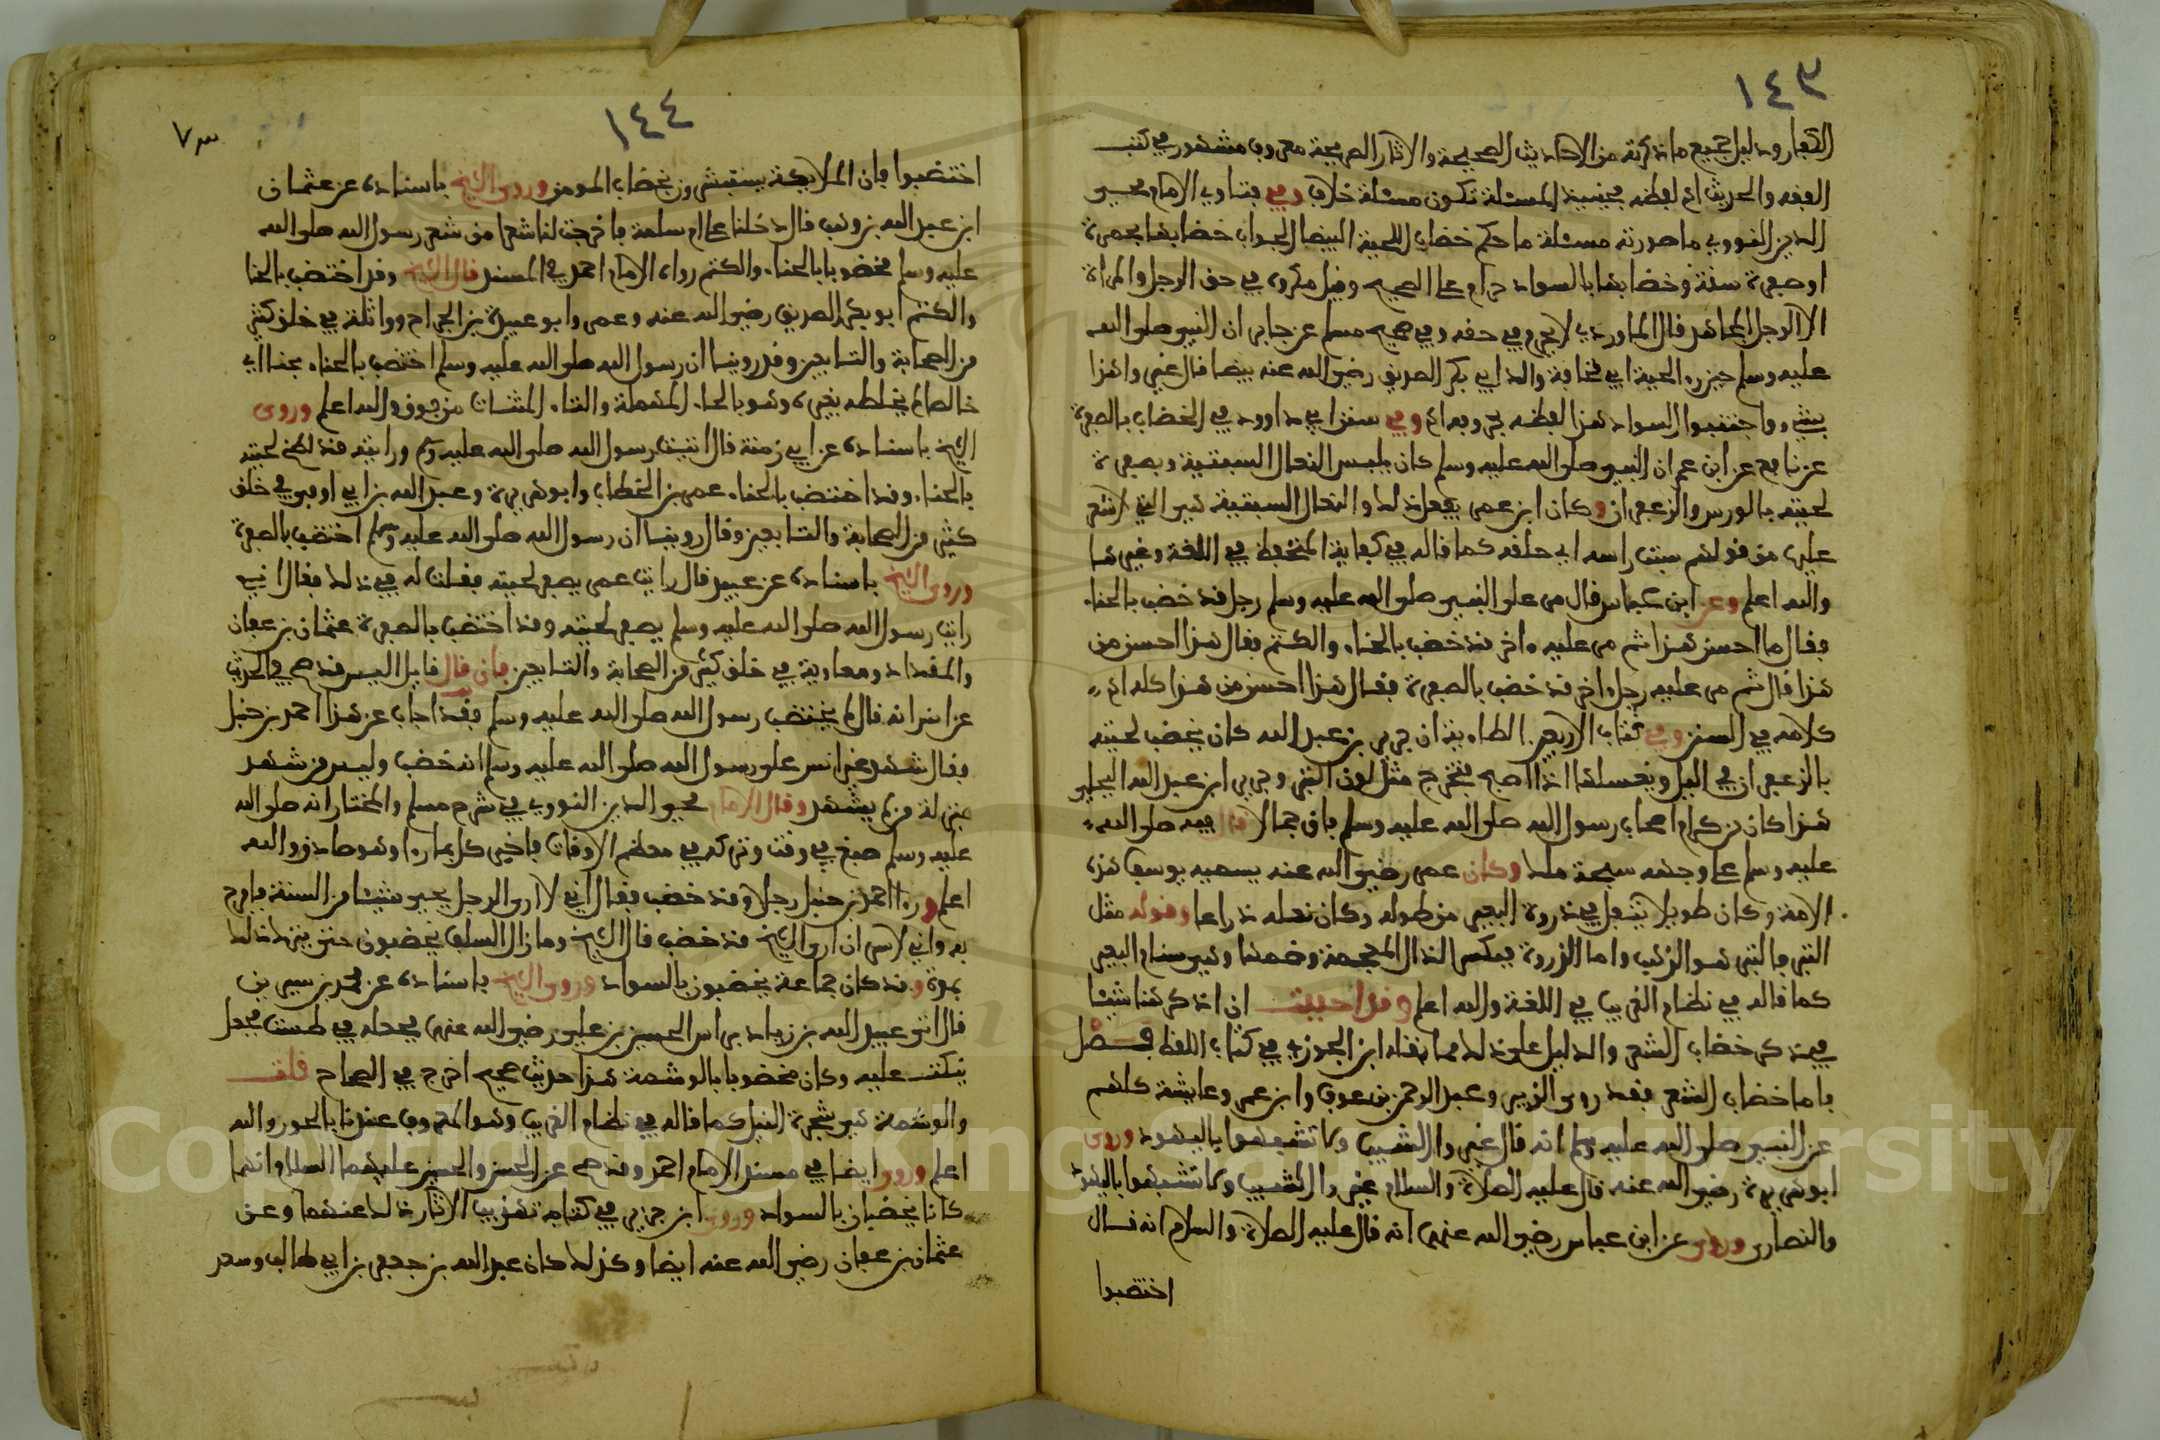 ١٤٣
الكفار ودليل جميع ما ذكرته من الاحاديث الصحيحة والاثار الصريحة معروف مشهور في كتب
الفقه والحديث انتهى لفظه المسئلة تكون مسئلة خلاف وفي فتاوى الامام محيي
الدين النووي ما صورته مسئلة ما حكم خضاب اللحية البيضا الجواب خضابها بحمرة
او صفرة سنة وخضابها بالسواد حرام على الصحيح وقيل مكروه في حق الرجل والمراة
الا الرجل المجاهد قال الماوردي لا يحرم في حقه وفي صحيح مسلم عن جابر ان النبي صلى الله
عليه وسلم حين راى لحية ابي قحافة والد ابي بكر الصديق رضي الله عنه بيضا قال غيروا هذا
بشيء واجتنبوا السواد هذا لفظه بحروفه انتهى وفي سنن ابي داوود في الخضاب بالصفرة
عن نافع عن ابن عمر ان النبي صلى الله عليه وسلم كان يلبس النعال السبتية ويصفر
لحيته بالورس والزعفران وكان ابن عمر يفعل ذلك والنعال السبتية هي التي لا شعر
عليها من قولهم سبت راسه اي حلقه كما قاله في كفاية المتحفظ في اللغة وغيرها
والله اعلم وعن ابن عباس قال مر على النبي صلى الله عليه وسلم رجل قد خضب بالحناء
فقال ما احسن هذا ثم مر عليه اخر قد خضب بالحناء والكتم فقال هذا احسن من
هذا قال ثم مر عليه رجل اخر قد خضب بالصفرة فقال هذا احسن من هذا كله انتهى
كلامه في السنن وفي كتاب الاربعين الطاهية ان جرير بن عبد الله كان يخضب لحيته
بالزعفران في الليل ويغسلها اذا اصبح فتخرج مثل لون التبر وجرير ابن عبد الله البجلي
هذا كان من كرام اصحاب رسول الله صلى الله عليه وسلم فاق جمالا قال فيه صلى الله
عليه وسلم على وجهه مسحة ملك وكان عمر رضي الله عنه يسميه يوسف هذه
الامة وكان طويلا يتفل في ذروة البعير من طوله وكان نعله ذراعا وقوله مثل
التبر فالتبر هو الذهب واما الذروة فبكسر الذال المعجمة وضمها وهي سنام البعير
كما قاله في نظام الغريب في اللغة والله اعلم وقد احببت ان اذكر هنا شيئا
في ذكر خضاب الشعر والدليل على ذلك مما نقله ابن الجوزي في كتاب اللفظ فصل
فاما خضاب الشعر فقد روى الزبير وعبد الرحمن بن عوف وابن عمر وعايشة كلهم
عن النبي صلى الله عليه وسلم انه قال غيروا الشيب ولا تشبهوا باليهود وروى
ابو هريرة رضي الله عنه قال عليه الصلاة والسلام غيروا الشيب ولا تشبهوا باليهود
والنصارى وروى عن ابن عباس رضي الله عنهما انه قال عليه الصلاة والسلام انه قال
اختضبوا
١٤٤
٧٣
اختضبوا فان الملايكة يستبشرون بخضاب المومن وروى الشيخ باسناده عن عثمان
ابن عبد الله بن وهب قال دخلنا على ام سلمة فاخرجت لنا شعرا من شعر رسول الله صلى الله
عليه وسلم مخضوبا بالحناء والكتم رواه الامام احمد في المسند قال الشيخ وقد اختضب بالحنا
والكتم ابو بكر الصديق رضي الله عنه وعمر وابو عبيدة بن الجراح وواثلة في خلق كثير
من الصحابة والتابعين وقد روينا ان رسول الله صلى الله عليه وسلم اختضب بالحناء بحتا اي
خالصا لم يخلطه بغيره وهو بالحاء المهملة والتاء المثناة من فوق والله اعلم وروى
الشيخ باسناده عن ابي رمثة قال اتيت رسول الله صلى الله عليه وسلم ورايته قد لطخ لحيته
بالحناء وقد اختضب بالحناء عمر بن الخطاب وابو هريرة وعبد الله بن ابي اوفى في خلق
كثير من الصحابة والتابعين وقال روينا ان رسول الله صلى الله عليه وسلم اختضب بالصفرة
وروى الشيخ باسناده عن عبيد قال رايت عمر يصفر لحيته فقلت له في ذلك فقال اني
رايت رسول الله صلى الله عليه وسلم يصفر لحيته وقد اختضب بالصفرة عثمان بن عفان
والمقداد ومعاوية في خلق كثير من الصحابة والتابعين فان قال قايل اليس قد صح في الحديث
عن انس انه قال لم يختضب رسول الله صلى الله عليه وسلم فقد اجاب عن هذا احمد بن حنبل
فقال شهد غير انس على رسول الله صلى الله عليه وسلم انه خضب وليس من شهد
بمنزلة من لم يشهد وقال الامام محيي الدين النووي في شرح مسلم والمختار انه صلى الله
عليه وسلم صبغ في وقت وتركه في معظم الاوقات فاخبر كل بما راى وهو صادق والله
اعلم وراى احمد بن حنبل رجلا وقد خضب فقال اني لارى الرجل يحيي شيئا من السنة فافرح
به واني لاسر ان ارى الشيخ قد خضب قال الشيخ وما زال السلف يخضبون حتى
وقد كان جماعة يخضبون بالسواد وروى الشيخ باسناده عن محمد بن سيرين
قال اتى عبيد الله بن زياد براس الحسين بن علي رضي الله عنهما فجعله في طست فجعل
ينكت عليه وكان مخضوبا بالوشمة هذا حديث صحيح اخرج في الصحاح قلت
والوشمة هي شجرة النيل كما قاله في نظام الغريب وهو المعروف عندنا بالحور والله
اعلم وروى ايضا في مسند الامام احمد وقد صح عن الحسن والحسين عليهما السلام انهما
كانا يخضبان بالسواد وروى ابن جرير في كتابه تهذيب الاثار ذلك عنهما وعن
عثمان بن عفان رضي الله عنه ايضا وكذلك كان عبد الله بن جعفر بن ابي طالب وسعد